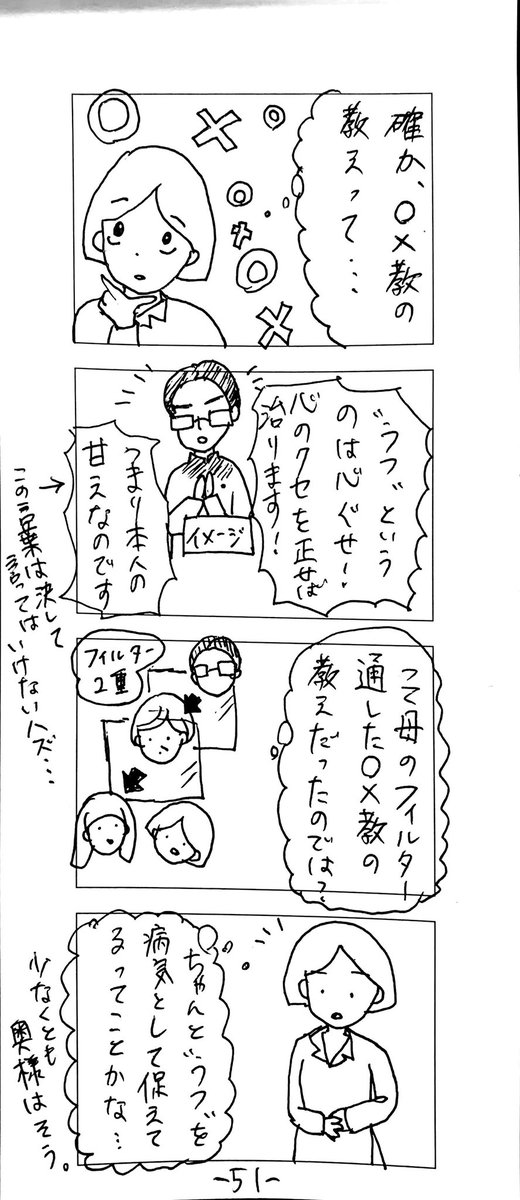 確か、〇×教の
教えって・・・
〝ウツ〟という
のは心ぐせ！
心のクセを正せば
治ります！
つまり本人の
甘えなのです
イメージ
この言葉は決して
言ってはいけないハズ・・・
って母のフィルター
通した〇×教の
教えだったのでは？
フィルター
2重
ちゃんと〝ウツ〟を
病気として捉えて
るってことかな・・・
少なくとも
奥様はそう。
-51-